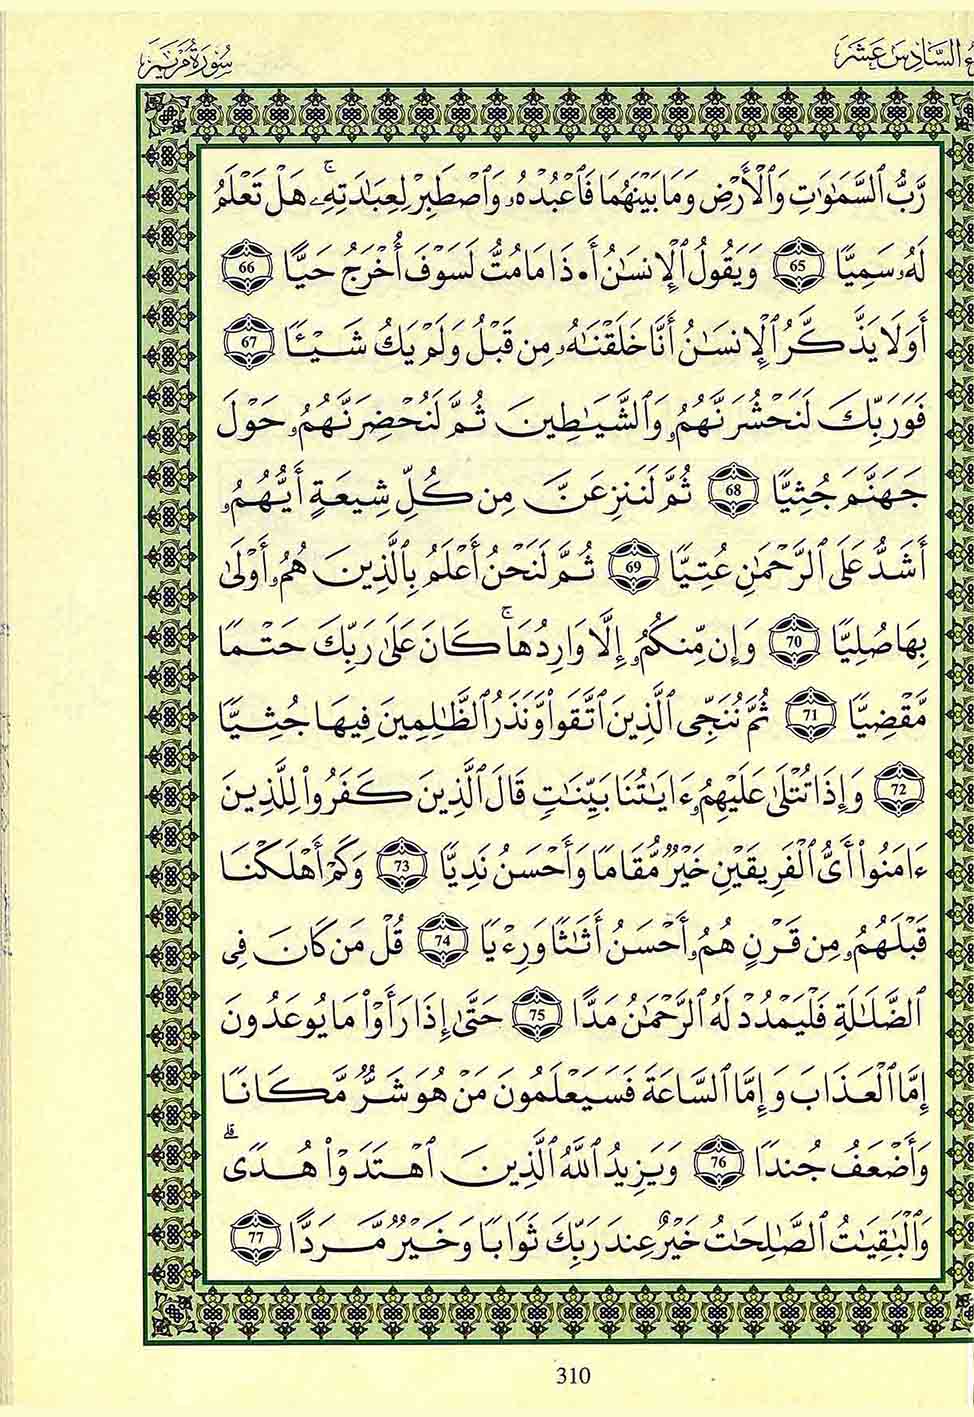 ءُ السَّادِسَ عَشَرَ
سُورَةُ مَرْيَمَ
رَّبُّ ٱلسَّمَٰوَٰتِ وَٱلْأَرْضِ وَمَا بَيْنَهُمَا فَٱعْبُدْهُۥ وَٱصْطَبِرْ لِعِبَٰدَتِهِۦۚ هَلْ تَعْلَمُ
لَهُۥ سَمِيًّا 65 وَيَقُولُ ٱلْإِنسَٰنُ أَ•ذَا مَا مُتُّ لَسَوْفَ أُخْرَجُ حَيًّا 66
أَوَلَا يَذَّكَّرُ ٱلْإِنسَٰنُ أَنَّا خَلَقْنَٰهُۥ مِن قَبْلُ وَلَمْ يَكُ شَيْـًٔا 67
فَوَرَبِّكَ لَنَحْشُرَنَّهُمُۥ وَٱلشَّيَٰطِينَ ثُمَّ لَنُحْضِرَنَّهُمُۥ حَوْلَ
جَهَنَّمَ جُثِيًّا 68 ثُمَّ لَنَنزِعَنَّ مِن كُلِّ شِيعَةٍ أَيُّهُمُۥ
أَشَدُّ عَلَى ٱلرَّحْمَٰنِ عُتِيًّا 69 ثُمَّ لَنَحْنُ أَعْلَمُ بِٱلَّذِينَ هُمُۥ أَوْلَىٰ
بِهَا صُلِيًّا 70 وَإِن مِّنكُمُۥ إِلَّا وَارِدُهَاۚ كَانَ عَلَىٰ رَبِّكَ حَتْمًا
مَّقْضِيًّا 71 ثُمَّ نُنَجِّى ٱلَّذِينَ ٱتَّقَوا۟ وَّنَذَرُ ٱلظَّٰلِمِينَ فِيهَا جُثِيًّا
72 وَإِذَا تُتْلَىٰ عَلَيْهِمُۥ ءَايَٰتُنَا بَيِّنَٰتٍ قَالَ ٱلَّذِينَ كَفَرُوا۟ لِلَّذِينَ
ءَامَنُوٓا۟ أَىُّ ٱلْفَرِيقَيْنِ خَيْرٌ مُّقَامًا وَأَحْسَنُ نَدِيًّا 73 وَكَمْ أَهْلَكْنَا
قَبْلَهُمُۥ مِن قَرْنٍ هُمُۥ أَحْسَنُ أَثَٰثًا وَرِءْيًا 74 قُلْ مَن كَانَ فِى
ٱلضَّلَٰلَةِ فَلْيَمْدُدْ لَهُ ٱلرَّحْمَٰنُ مَدًّا 75 حَتَّىٰ إِذَا رَأَوْا۟ مَا يُوعَدُونَ
إِمَّا ٱلْعَذَابَ وَإِمَّا ٱلسَّاعَةَ فَسَيَعْلَمُونَ مَنْ هُوَ شَرٌّ مَّكَانًا
وَأَضْعَفُ جُندًا 76 وَيَزِيدُ ٱللَّهُ ٱلَّذِينَ ٱهْتَدَوْا۟ هُدًىۗ
وَٱلْبَٰقِيَٰتُ ٱلصَّٰلِحَٰتُ خَيْرٌ عِندَ رَبِّكَ ثَوَابًا وَخَيْرٌ مَّرَدًّا 77
310